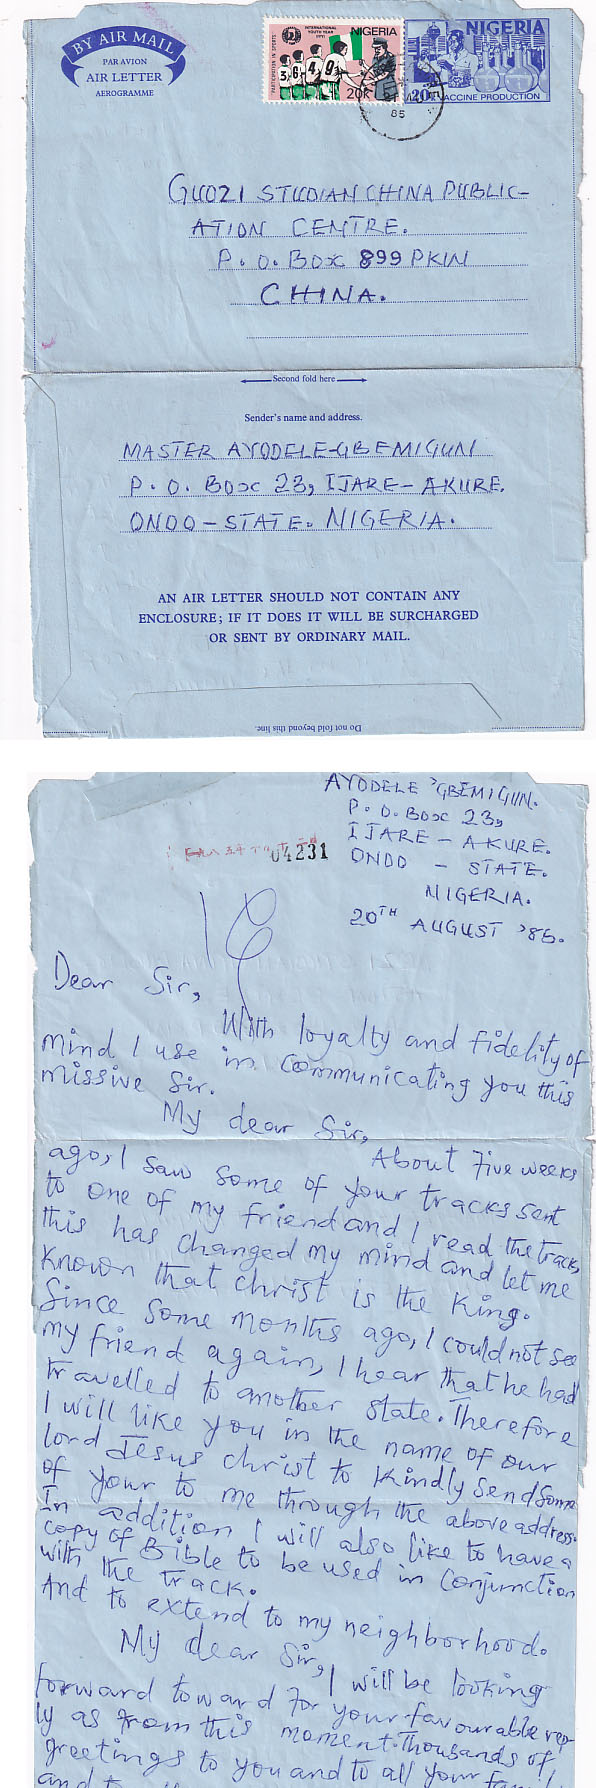 BY AIR MAIL
PAR AVION
AIR LETTER
AEROGRAMME
INTERNATIONAL
YOUTH YEAR
1985
NIGERIA
PARTICIPATION IN SPORTS
3 6 4 9
20k
NIGERIA
20k
VACCINE PRODUCTION
85
GUOZI STUDIAN CHINA PUBLIC-
ATION CENTRE.
P.O. BOX 899 PKIN
CHINA.
Second fold here
Sender's name and address.
MASTER AYODELE-GBEMIGUN
P.O. BOX 23, IJARE-AKURE.
ONDO-STATE. NIGERIA.
AN AIR LETTER SHOULD NOT CONTAIN ANY
ENCLOSURE; IF IT DOES IT WILL BE SURCHARGED
OR SENT BY ORDINARY MAIL.
Do not fold beyond this line.
AYODELE 'GBEMIGUN.
P.O. BOX 23,
IJARE - AKURE.
ONDO - STATE.
NIGERIA.
20TH AUGUST '85.
04231
Dear Sir,
With loyalty and fidelity of
mind I use in communicating you this
missive Sir.
My dear Sir,
About five weeks
ago, I saw some of your tracks sent
to one of my friend and I read the tracks
this has changed my mind and let me
known that christ is the King.
Since some months ago, I could not see
my friend again, I hear that he had
travelled to another state. Therefore
I will like you in the name of our
lord Jesus christ to kindly send some
of your to me through the above address.
In addition I will also like to have a
copy of Bible to be used in conjunction
with the track.
And to extend to my neighborhood.
My dear Sir,
I will be looking
forward toward for your favourable rep-
ly as from this moment. Thousands of
greetings to you and to all your
and to